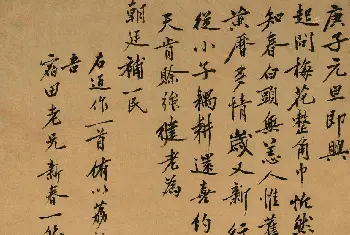 庚子元旦即興
起問梅花整角巾忻然
知春白頭無恙人惟舊
黃曆多情歲又新行
從小子耦耕還喜約
天肯賒強健老為
朝廷補一民
右近作一首
吾
宿田老兄新春一